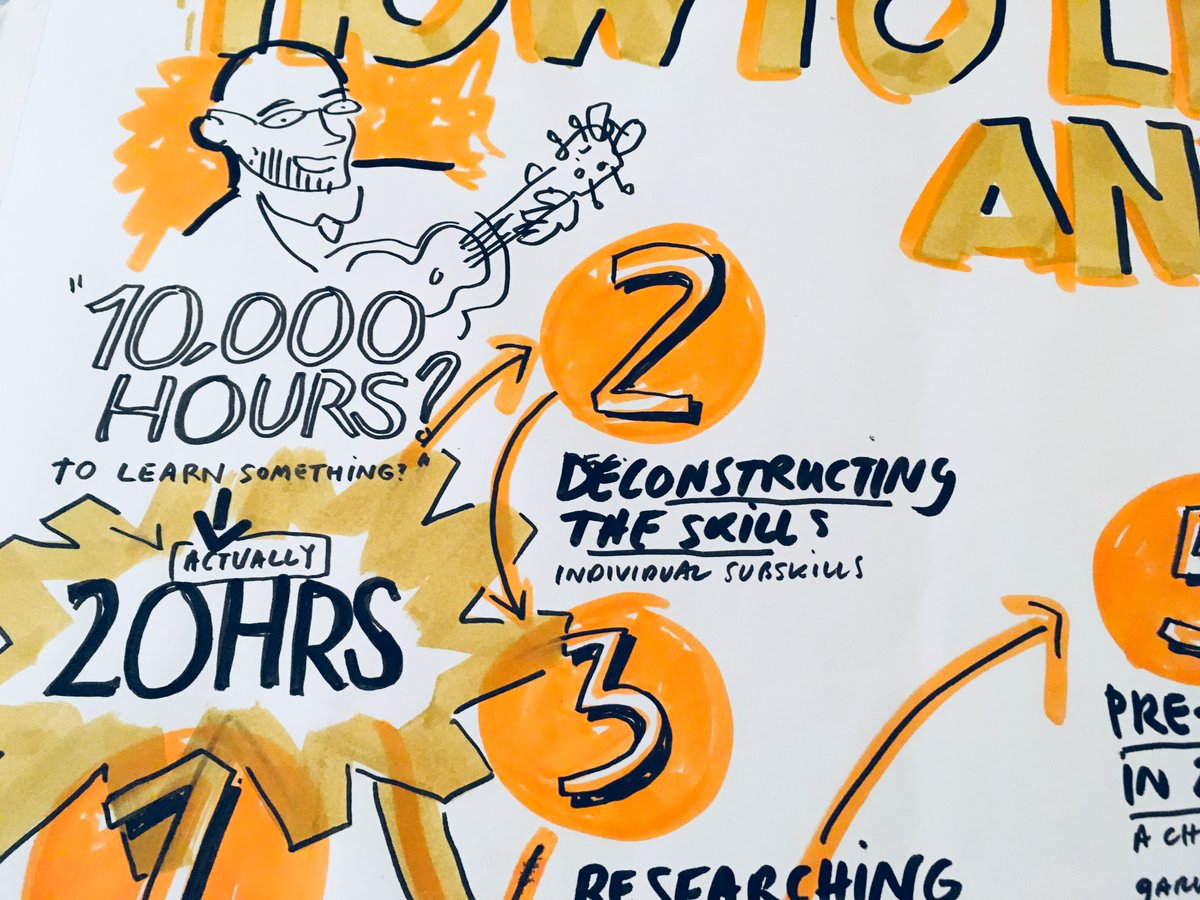 HOW TO
AN
"10,000
HOURS?
TO LEARN SOMETHING?"
ACTUALLY
20HRS
1
2
DECONSTRUCTING
THE SKILLS
INDIVIDUAL SUBSKILLS
3
RESEARCHING
5
PRE-
IN
A CH